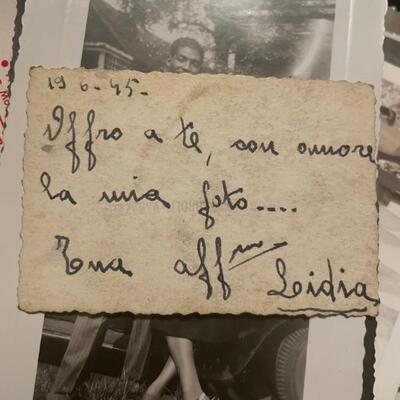 19 6-45-
Offro a te, con amore
la mia foto....
Tua aff ma Lidia